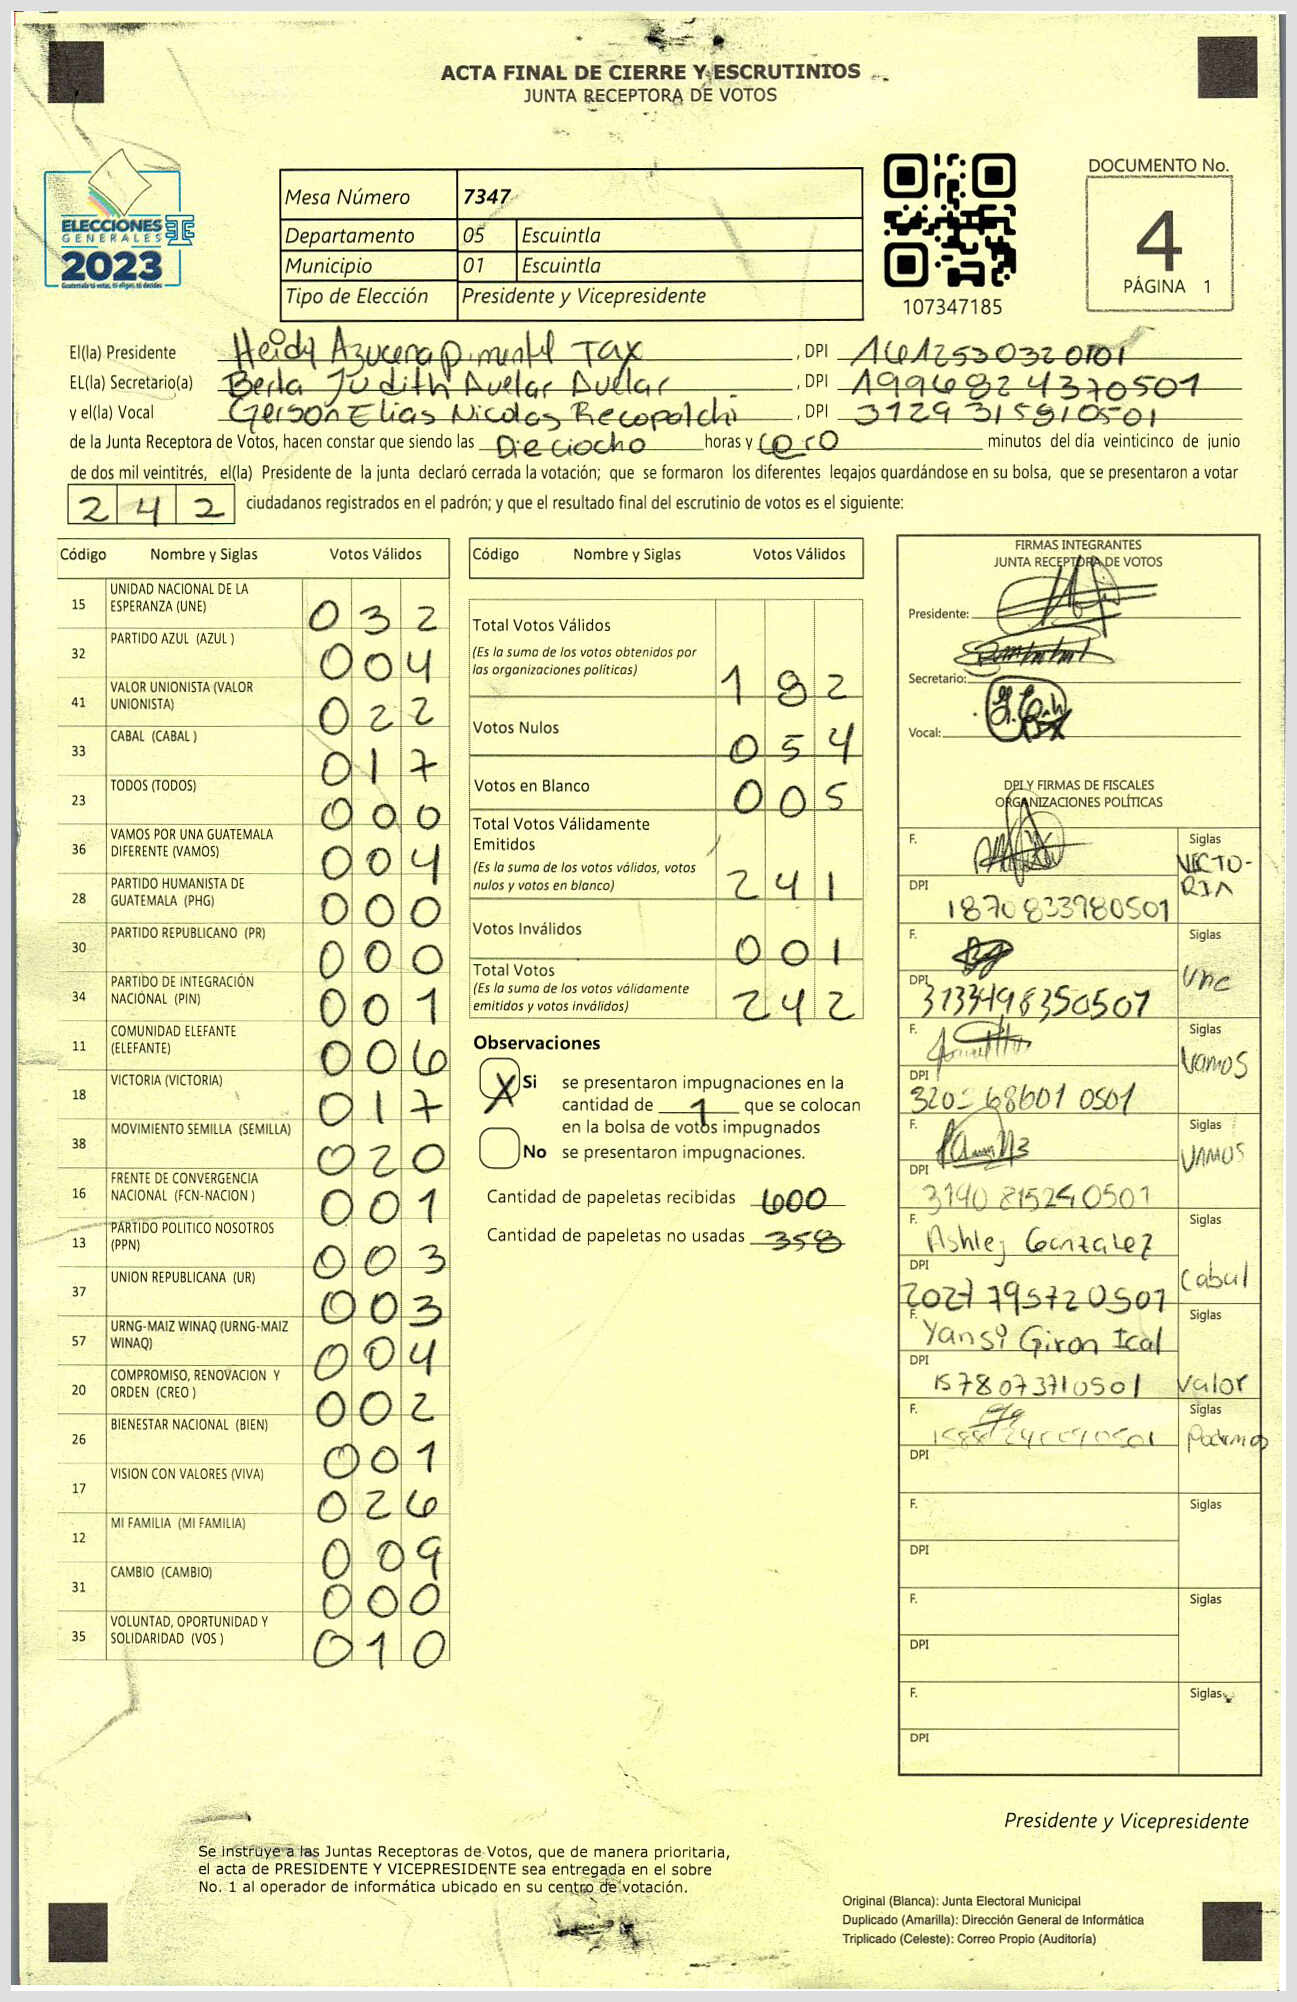 ACTA FINAL DE CIERRE Y ESCRUTINIOS
JUNTA RECEPTORA DE VOTOS
ELECCIONES
GENERALES
2023
Guatemala tú votas, tú eliges, tú decides
Mesa Número 7347
Departamento 05 Escuintla
Municipio 01 Escuintla
Tipo de Elección Presidente y Vicepresidente
107347185
DOCUMENTO No.
4
PÁGINA 1
El(la) Presidente Heidy Azucena Pimentel Tax , DPI 1612530320101
EL(la) Secretario(a) Berta Judith Avelar Avelar , DPI 1996824370501
y el(la) Vocal Gerson Elias Nicolas Recopalchi , DPI 3129315810501
de la Junta Receptora de Votos, hacen constar que siendo las Dieciocho horas y cero minutos del día veinticinco de junio
de dos mil veintitrés, el(la) Presidente de la junta declaró cerrada la votación; que se formaron los diferentes legajos guardándose en su bolsa, que se presentaron a votar
242 ciudadanos registrados en el padrón; y que el resultado final del escrutinio de votos es el siguiente:
Código Nombre y Siglas Votos Válidos
15 UNIDAD NACIONAL DE LA ESPERANZA (UNE) 032
32 PARTIDO AZUL (AZUL ) 004
41 VALOR UNIONISTA (VALOR UNIONISTA) 022
33 CABAL (CABAL ) 017
23 TODOS (TODOS) 000
36 VAMOS POR UNA GUATEMALA DIFERENTE (VAMOS) 004
28 PARTIDO HUMANISTA DE GUATEMALA (PHG) 000
30 PARTIDO REPUBLICANO (PR) 000
34 PARTIDO DE INTEGRACIÓN NACIONAL (PIN) 001
11 COMUNIDAD ELEFANTE (ELEFANTE) 006
18 VICTORIA (VICTORIA) 017
38 MOVIMIENTO SEMILLA (SEMILLA) 020
16 FRENTE DE CONVERGENCIA NACIONAL (FCN-NACION ) 001
13 PARTIDO POLITICO NOSOTROS (PPN) 003
37 UNION REPUBLICANA (UR) 003
57 URNG-MAIZ WINAQ (URNG-MAIZ WINAQ) 004
20 COMPROMISO, RENOVACION Y ORDEN (CREO ) 002
26 BIENESTAR NACIONAL (BIEN) 001
17 VISION CON VALORES (VIVA) 026
12 MI FAMILIA (MI FAMILIA) 009
31 CAMBIO (CAMBIO) 000
35 VOLUNTAD, OPORTUNIDAD Y SOLIDARIDAD (VOS ) 010
Código Nombre y Siglas Votos Válidos
Total Votos Válidos
(Es la suma de los votos obtenidos por
las organizaciones políticas) 182
Votos Nulos 054
Votos en Blanco 005
Total Votos Válidamente
Emitidos
(Es la suma de los votos válidos, votos
nulos y votos en blanco) 241
Votos Inválidos 001
Total Votos
(Es la suma de los votos válidamente
emitidos y votos inválidos) 242
Observaciones
X Si se presentaron impugnaciones en la
cantidad de 1 que se colocan
en la bolsa de votos impugnados
No se presentaron impugnaciones.
Cantidad de papeletas recibidas 600
Cantidad de papeletas no usadas 358
FIRMAS INTEGRANTES
JUNTA RECEPTORA DE VOTOS
Presidente:
Secretario:
Vocal:
DPI Y FIRMAS DE FISCALES
ORGANIZACIONES POLÍTICAS
F. Siglas VICTORIA
DPI 1870833980501
F. Siglas une
DPI 3133498350501
F. Siglas Vamos
DPI
F. Siglas VAMOS
DPI 3190815240501
F. Ashley Gonzalez Siglas Cabal
DPI 2027795720501
F. Yansi Giron Ical Siglas Valor
DPI 1578073710501
F. Siglas Podemos
DPI
F. Siglas
DPI
F. Siglas
DPI
F. Siglas
DPI
Presidente y Vicepresidente
Se instruye a las Juntas Receptoras de Votos, que de manera prioritaria,
el acta de PRESIDENTE Y VICEPRESIDENTE sea entregada en el sobre
No. 1 al operador de informática ubicado en su centro de votación.
Original (Blanca): Junta Electoral Municipal
Duplicado (Amarilla): Dirección General de Informática
Triplicado (Celeste): Correo Propio (Auditoría)